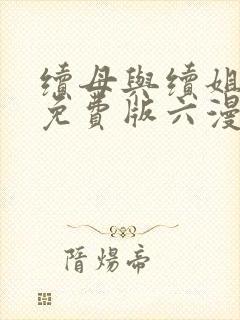 續母與續姐
免費版六漫
隋煬帝